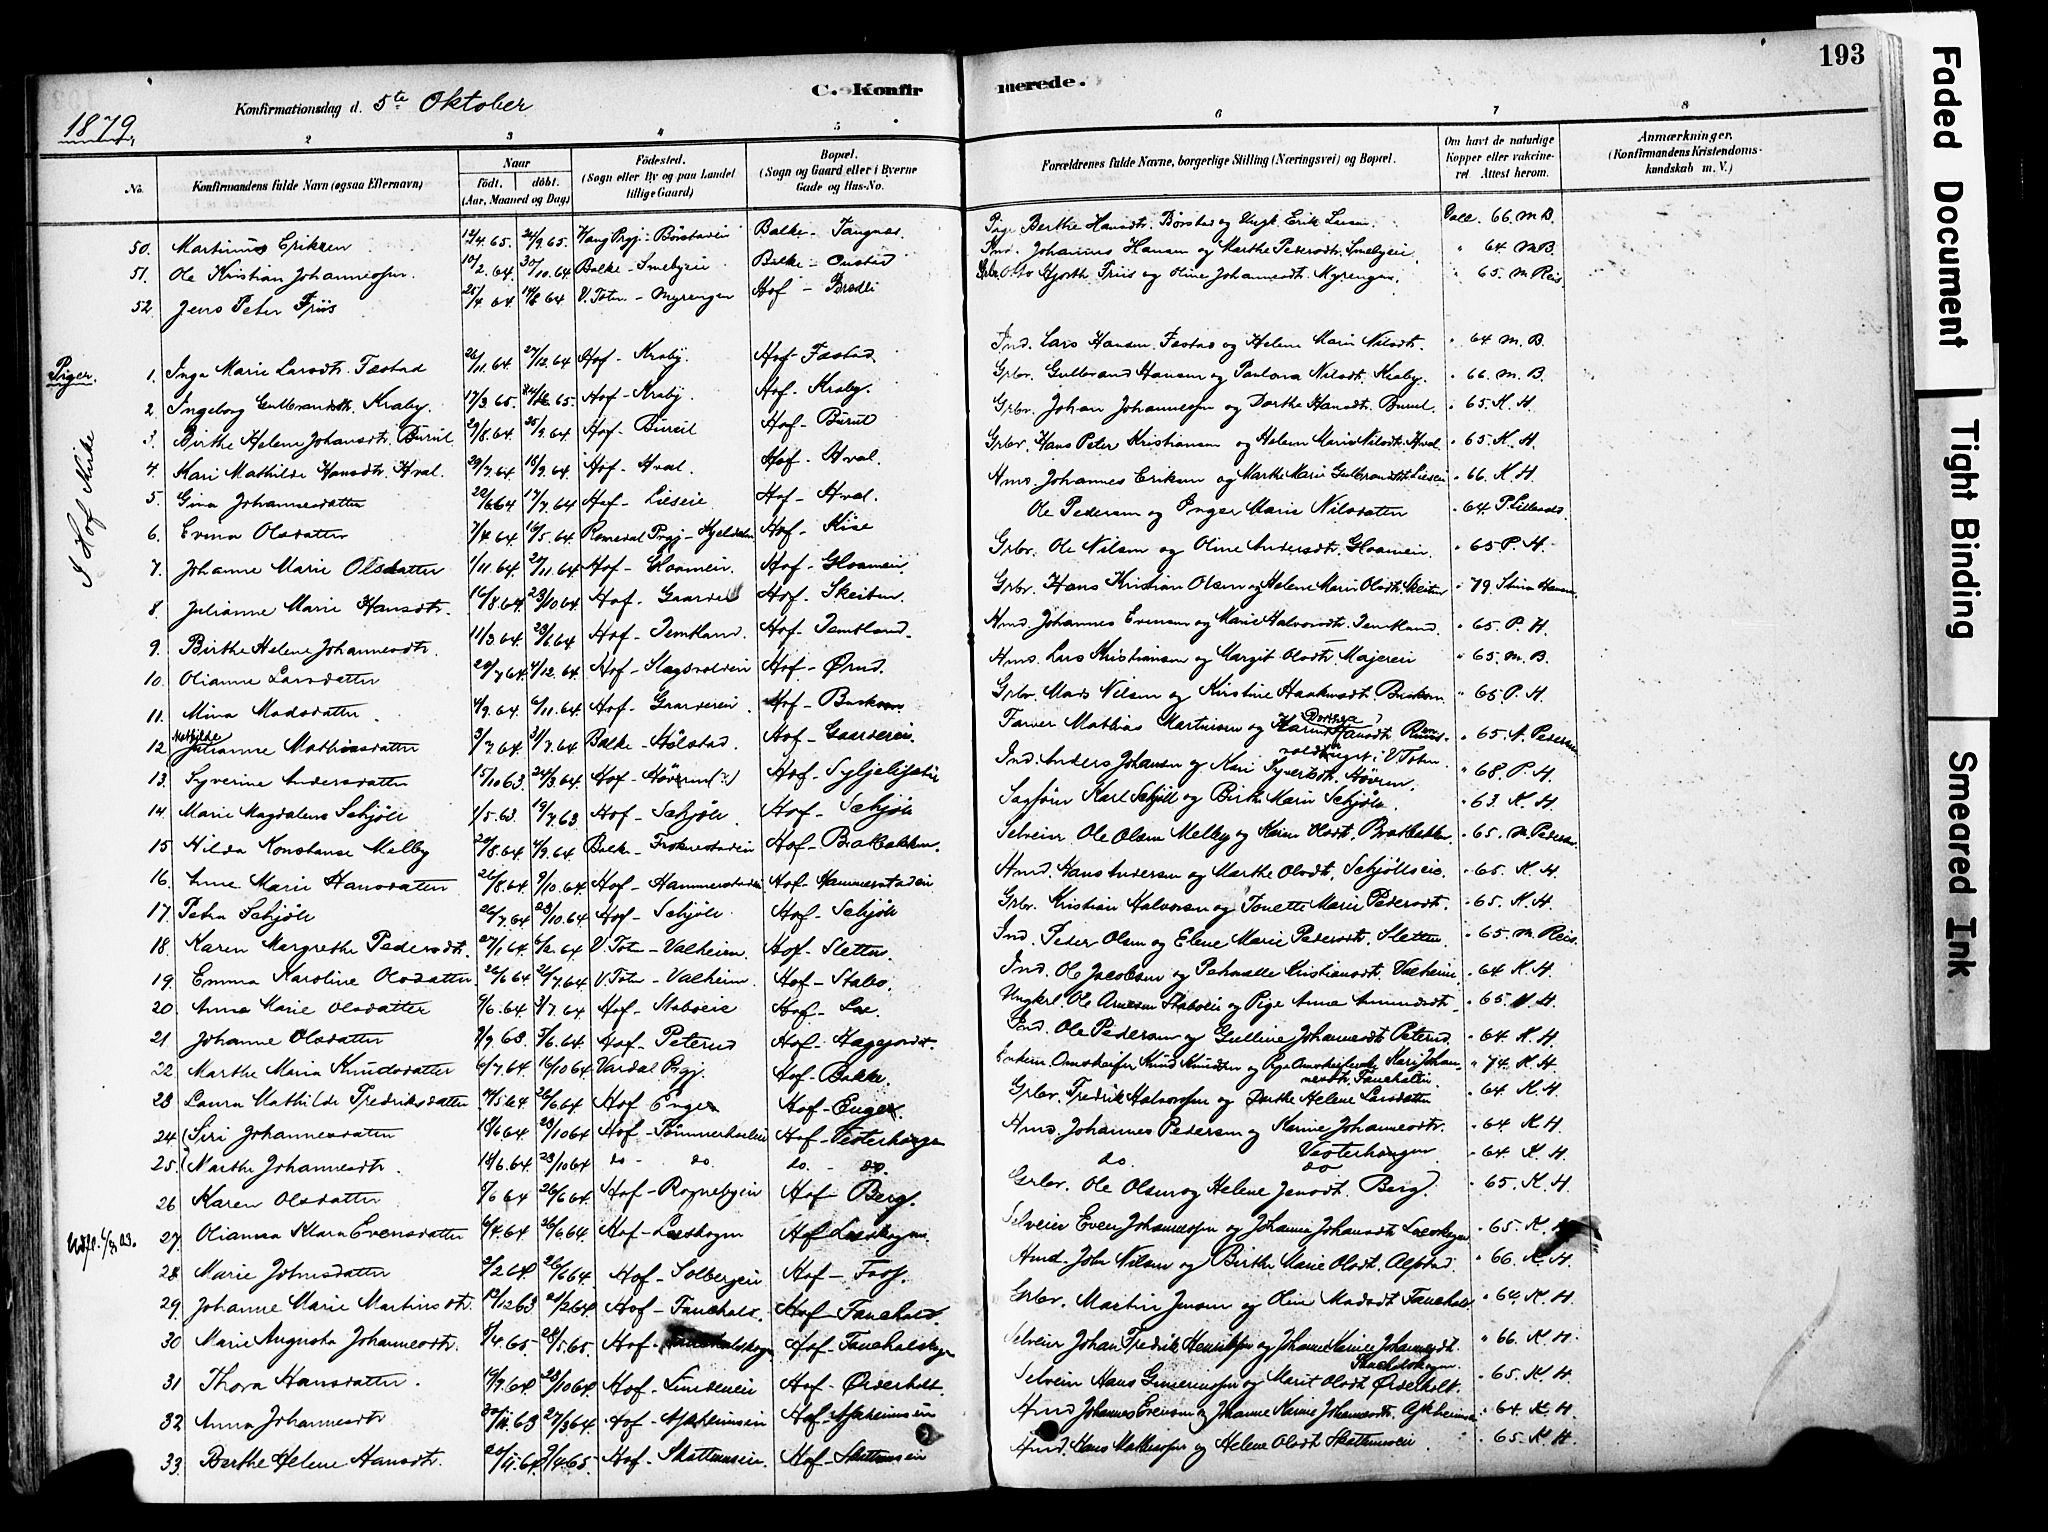 193
C. Konfirmerede.
Konfirmationsdag d. 5te Oktober
1879
2 3 4 5 6 7 8
No.
Konfirmandens fulde Navn (ogsaa Efternavn)
Naar
født. døbt.
(Aar, Maaned og Dag)
Fødested.
(Sogn eller By og paa Landet
tillige Gaard)
Bopæl.
(Sogn og Gaard eller i Byerne
Gade og Hus-No.
Forældrenes fulde Navne, borgerlige Stilling (Næringsvei) og Bopæl.
Om havt de naturlige
Kopper eller vakcine-
ret. Attest herom.
Anmærkninger.
(Konfirmandens Kristendoms-
kundskab m. V.)
50. Martinus Eriksen 24/9.65. Vang Prgj - Børstadeie Balke - Tangnæs Pige Berthe Hansdt. Børstad og Ungk. Erik Larsen. Vacc. 66. M.B.
51. Ole Kristian Johannessen 10/2.64. 30/10.64 Balke - Smebyeie Balke - Johannes Hansen og Marthe Pedersdt. Smebyeie. " 64 M.B.
52. Jens Peter Friis 25/4 64. V. Toten - Myrengen Hof - Bredli Otto Hjorth Friis og Oline Johannesdt. Myrengen. " 65. M. Reis.
Piger.
I Hof Kirke
1. Inga Marie Larsdt. Fæstad 26/11.64. 27/12.64 Hof - Kraby. Hof - Fæstad. Ind. Lars Hansen Fæstad og Helene Marie Nilsdt. " 64 M.B.
2. Ingeborg Gulbrandsdt. Kraby. 17/3.65. Hof - Kraby. Hof - Kraby. Grbr. Gulbrand Hansen og Paulova Nilsdt. Kraby. " 66. M.B.
3. Birthe Helene Johansdt. Burul 29/8.64. 25/9.64. Hof - Burul Hof - Burul Grbr. Johan Johannessen og Dorthe Hansdt. Burul. " 65. K.H.
4. Kari Mathilde Hansdt. Hval. 29/7.64 18/9.64. Hof - Hval. Hof - Hval. Grbr. Hans Peter Kristiansen og Helene Marie Nilsdt. Hval " 65. K.H.
5. Gina Johannesdatter 22/6 64 17/7.64 Hof - Lieseie Hof - Hval. Hmd. Johannes Eriksen og Marthe Marie Gulbrandsdt. Lieseie " 66. K.H.
6. Evena Olsdatter 7/4.64. 16/5.64. Romedal Prgj - Hof - Kise Ole Pedersen og Inger Marie Nilsdatter " 64 P.
7. Johanne Marie Olsdatter 1/11.64. 27/11.64 Hof - Gloameie. Hof - Gloameie. Grbr. Ole Nilsen og Oline Andersdt. Gloameie. " 65 P.H.
8. Julianne Marie Hansdt. 16/8.64 23/10.64 Hof - Gaarder Hof - Skeiten. Grbr. Hans Kristian Olsen og Helene Marie Olsdt. Skeiten " 79. Stina Hansen.
9. Birthe Helene Johannesdt. 11/3.64 Hof - Jemtland. Hof - Jemtland. Hmd. Johannes Evensen og Marie Halvorsdt. Jemtland. " 65. P.H.
10. Olianne Larsdatter 20/7 64 4/12.64. Hof - Slagsvoldeie Hof - Ørud. Hmd. Lars Kristiansen og Margit Olsdt. Majereie " 65. M.B.
11. Mina Madsdatter. 4/9.64. 6/11.64. Hof - Gaardereie. Hof - Buskern Grbr. Mads Nilsen og Kirstine Haakensdt. Buskern " 65. P.H.
12. Mathilde Julianne Mathiasdatter 3/7 64. 31/7.64 Balke - Stølstad. Hof - Gaardereie. Farver Mathias Martinsen og Dorthea Hansdt. V. Toten. " 65. A. Pedersen
13. Syverine Andersdatter 15/10 63 24/3.64. Hof - Høveren (?) Hof - Ind. Anders Johansen og Kari Syversdt. Høveren. " 68. P.H.
14. Marie Magdalena Schjøll 1/5.63. 19/7.63 Hof - Schjøll. Hof - Schjøll Sagfører Karl Schjøll og Birthe Marie Schjøll. " 63. K.H.
15. Hilda Konstanse Melby 20/8.64. 4/9.64. Balke - Frokerstadeie Hof - Brakbakken. Selveier Ole Olsen Melby og Karen Olsdt. Brakbakken. " 65. M. Pedersen
16. Anne Marie Hansdatter 26/8.64 9/10.64. Hof - Hammerstadeie Hof - Hammerstadeie Hmd. Hans Andersen og Marthe Olsdt. Schjøllseie. " 65. K.H.
17. Petra Schjøll 26/7.64 23/10.64. Hof - Schjøll. Hof - Schjøll Grbr. Kristian Halvorsen og Tonette Marie Pedersdt. " 65. K.H.
18. Karen Margrethe Pedersdt. 27/1.64 6/2.64 V. Toten - Valheim. Hof - Sletten. Ind. Peder Olsen og Elene Marie Pedersdt. Sletten. " 65. M. Reis.
19. Emma Karoline Olsdatter. 26/6 64 26/7.64 V. Toten - Valheim. Hof - Stabo. Ind. Ole Jacobsen og Pernelle Kristiansdt. Valheim. " 64 K.H.
20. Anna Marie Olsdatter 9/6.64 3/7.64 Hof - Staboeie Hof - Loe. Ungkrl. Ole Arnesen Staboeie og Pige Anne Amundsdt. " 65. K.H.
21 Johanne Olsdatter 2/9 63. 5/6.64. Hof - Peterud Hof - Haggjordet. Ind. Ole Pedersen og Gulline Johannesdt. Peterud. " 64. K.H.
22. Marthe Maria Knudsdatter 6/7.64. 16/10 64 Vardal Prgj. Hof - Bakke. Enkem. Omstreifer Knud Knudsen og Pige Omstreiferske Kari Johannesdt. Fauchaldeie. " 74. K.H.
23. Laura Mathilde Fredriksdatter 14/5.64. 26/6.64 Hof Enger Hof - Enger. Grbr. Fredrik Halvorsen og Dorthe Helene Larsdatter " 64. K.H.
24. Siri Johannesdatter 18/6 64 23/10 64 Hof - Tømmerholeie Hof - Vesterhaugen Hmd. Johannes Pedersen og Karine Johannesdt. Vesterhaugen " 64 K.H.
25. Marthe Johannesdt. 18/6.64. 23/10 64 do - do. do. - do. do. do " 64. K.H.
26 Karen Olsdatter 5/6 64 26/6 64. Hof - Rognebyeie Hof - Berg. Grbr. Ole Olsen og Helene Jensdt. Berg. " 65. K.H.
Udfl. 6/8 03. 27. Olianna Klara Evensdatter 6/4.64 26/6 64. Hof - Loeskogen Hof Loeskogen. Selveier Even Johannessen og Johanne Johansdt. Loeskogen " 65. K.H.
28. Marie Johnsdatter 2/2 64 26/6 64 Hof - Solbergeie Hof - Fos. Hmd. John Nilsen og Birthe Marie Olsdt. Alfstad. " 66. K.H.
29. Johanne Marie Martinsdt. 12/12 63 21/2 64 Hof - Fauchald. Hof - Fauchald. Grbr. Martin Jensen og Oline Madsdt. Fauchald " 64. K.H.
30 Marie Augusta Johannesdt. 8/4.65 - 28/5.65. Hof - Fauchaldskogen Hof - Fauchaldskogen Selveier Johan Fredrik Henriksen og Johanne Karine Johannesdt. Fauchaldskogen. " 66. K.H.
31 Thora Hansdatter. 19/9.64 23/10 64 Hof - Lundeneie Hof - Ørderholt. Selveier Hans Gunerinssen og Marit Olsdt. Ørderholt. " 65. K.H.
32. Anna Johannesdt. 30/11.63 27/3 64. Hof - Apheimseie Hof - Apheimseie Hmd Johannes Evensen og Johanne Karine Johannesdt. Apheimseie " 64. K.H.
33. Berthe Helene Hansdt. 20/11.64 9/4 65. Hof - Skattumseie. Hof - Skattumseie Hmd. Hans Mathesen og Helene Olsdt. Skattumseie. " 65. K.H.
Faded Document
Tight Binding
Smeared Ink